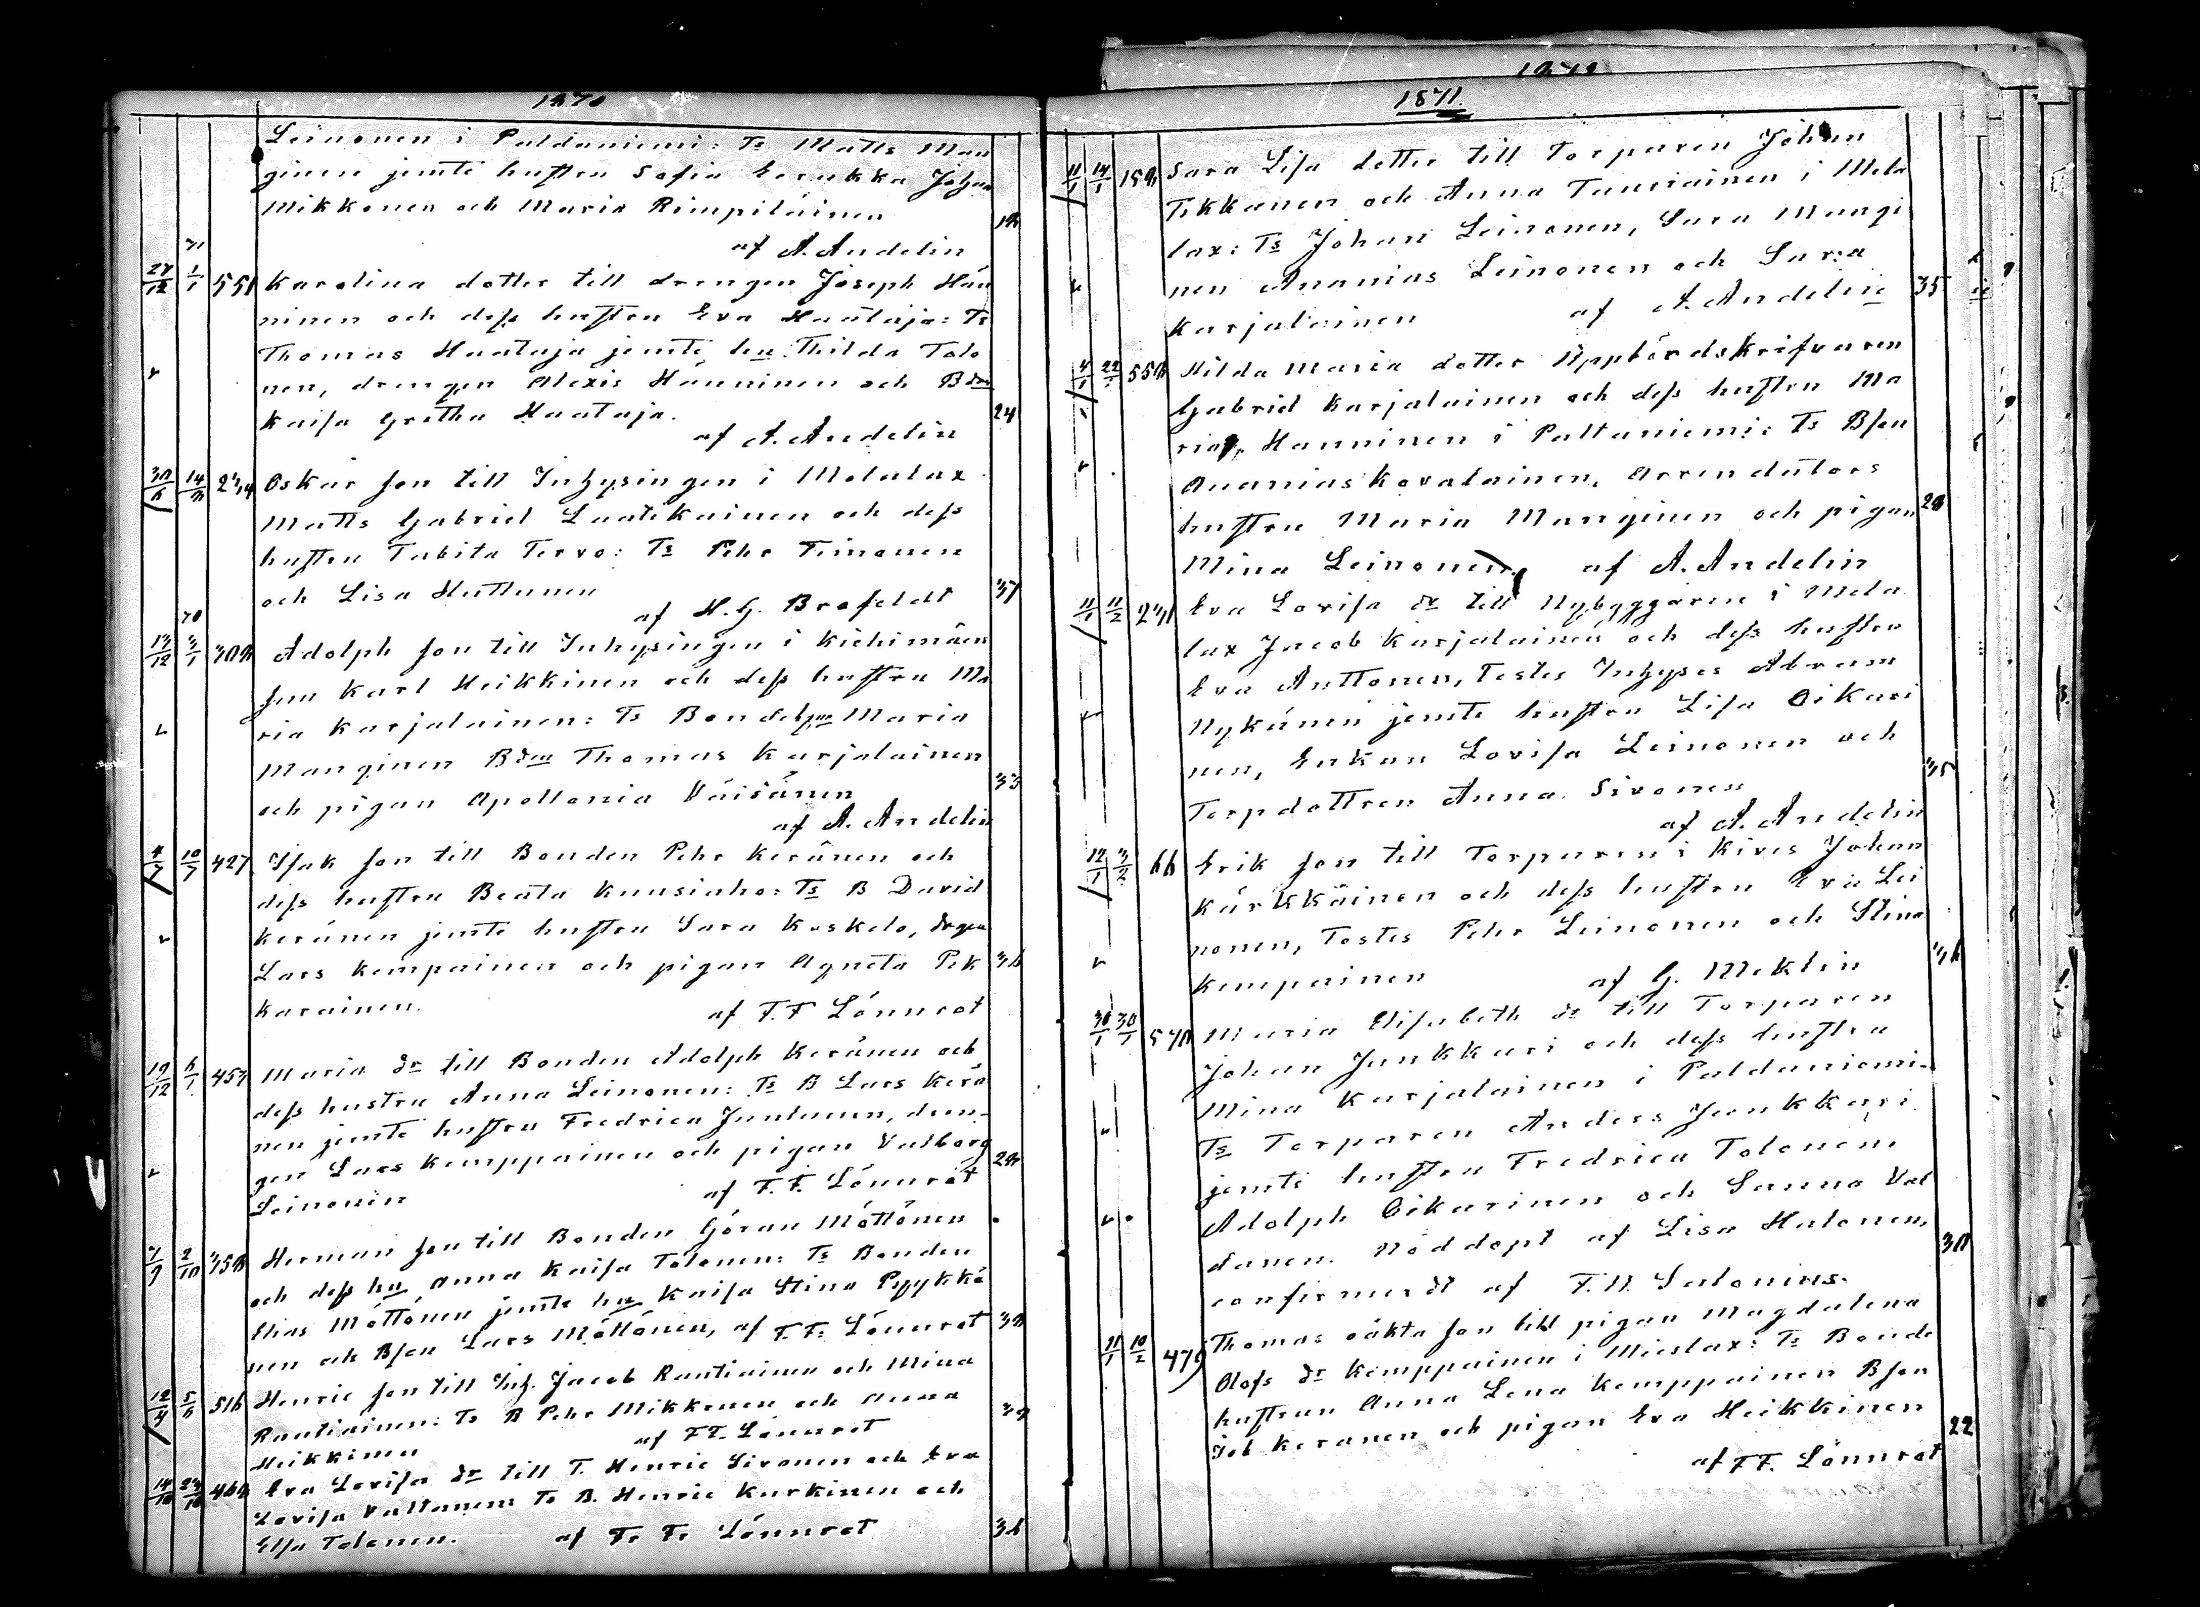 1870
Leinonen i Paldaniemi: Ts Matts Man
ginen jemte hustru Sofia Johan
Mikkonen och Maria Rimpiläinen
af A. Andelin
71
27/12 1/1 551 Karolina dotter till drengen Joseph Hän
ninen och dess hustru Eva Haataja: Ts
Thomas Haataja jemte hu Thilda Tolo
nen, drengen Alexis Hänninen och Bdrn
Kaisa Gretha Haataja. 24
af A. Andelin
Oskar son till Inhysingen i Melalax
Matts Gabriel Laatikainen och dess
hustru Tabita Tervo: Ts Pehr Leinonen
och Lisa Huttunen 37
af H. G. Brofeldt
70
Adolph son till Inhysingen i Kiehimäen
suu Karl Heikkinen och dess hustru Ma
ria Karjalainen: Ts Maria
Manginen Bdrn Thomas Karjalainen
och pigan Apollonia Väisänen 33
af A. Andelin
427 Isak son till Bonden Pehr Keränen och
dess hustru Beata Kuusiaho: Ts B David
Keränen jemte hustru Sara Koskelo, drgen
Lars Kempainen och pigan Agneta Pik
karainen. af F. F. Lönnrot
19/12 6/1 457 Maria dr till Bonden Adolph Keränen och
dess hustru Anna Leinonen: Ts B Lars Kerä
nen jemte hustru Fredrica Juntunen, dren-
gen Lars Kemppainen och pigan Valborg
Leinonen af F. F. Lönnrot
7/9 2/10 Herman son till Bonden Göran Möttönen
och dess hu Anna Kaisa Tolonen: Ts Bonden
Elias Möttönen jemte hu Kaisa Stina Pyykkö
nen och Bson Lars Möttönen, af F. F. Lönnrot
516 Henric son till Inh. Jacob Rautiainen och Mina
Rautiainen: Ts B Pehr Mikkonen och Anna
Heikkinen af F. F. Lönnrot
Eva Lovisa dr till T. Henric Sivonen och Eva
Lovisa Valtanen: Ts B. Henric Kurkinen och
Elsa Tolonen. af Fr. Fr. Lönnrot 36
1871.
11/1 14/1 Sara Lisa dotter till Torparen Johan
Tikkanen och Anna Tauriainen i Mela
lax: Ts Johan Leinonen, Sara Mangi
nen Ananias Leinonen och Sara
Karjalainen af A. Andelin 35
Hilda Maria dotter Uppbördskrifvaren
Gabriel Karjalainen och dess hustru Ma
ria, Hänninen i Paltaniemi: Ts Bson
Ananias Kovalainen, Arrendators
hustru Maria Manginen och pigan
Mina Leinonen, af A. Andelin
11/1 11/2 Eva Lovisa dr till Nybyggaren i Mela
lax Jacob Karjalainen och dess hustru
Eva Anttonen, Testes Inhyses Abram
Nykänen jemte hustru Lisa Oikari
nen, Enkan Lovisa Leinonen och
Torpdottren Anna Sivonen 35
af A. Andelin
12/1 3/2 66 Erik son till Torparen i Kives Johan
Kärkkäinen och dess hustru Eva Lei
nonen, Testes Pehr Leinonen och Stina
Kempainen af G. Meklin 36
30/1 30/1 570 Maria Elisabeth dr till Torparen
Johan Junkkari och dess hustru
Mina Karjalainen i Paldaniemi.
Ts Torparen Anders Junkkari
jemte hustru Fredrica Tolonen,
Adolph Oikarinen och Sanna Val
danen. Nöddöpt af Lisa Halonen,
confirmerdt af F. W. Salonius. 30
11/1 10/2 479 Thomas oäkta son till pigan Magdalena
Olofs dr Kemppainen i Mieslax: Ts Bonde
hustrun Anna Lena Kemppainen Bson
Job Keränen och pigan Eva Heikkinen 22
af F. F. Lönnrot